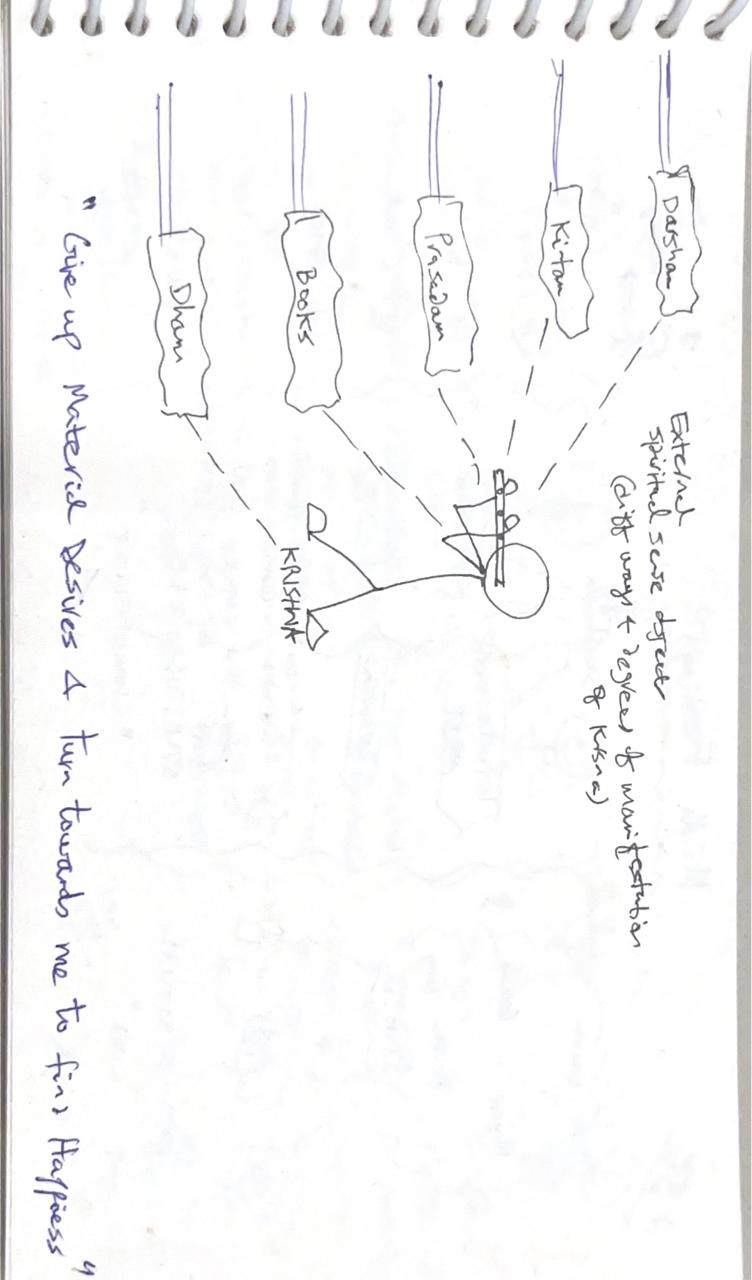 External
spiritual sense objects
(diff ways + Degrees of manifestation
of Krsna)
Darshan
Kirtan
Prasadam
Books
Dham
KRISHNA
"Give up Material Desires & turn towards me to find Happiess"